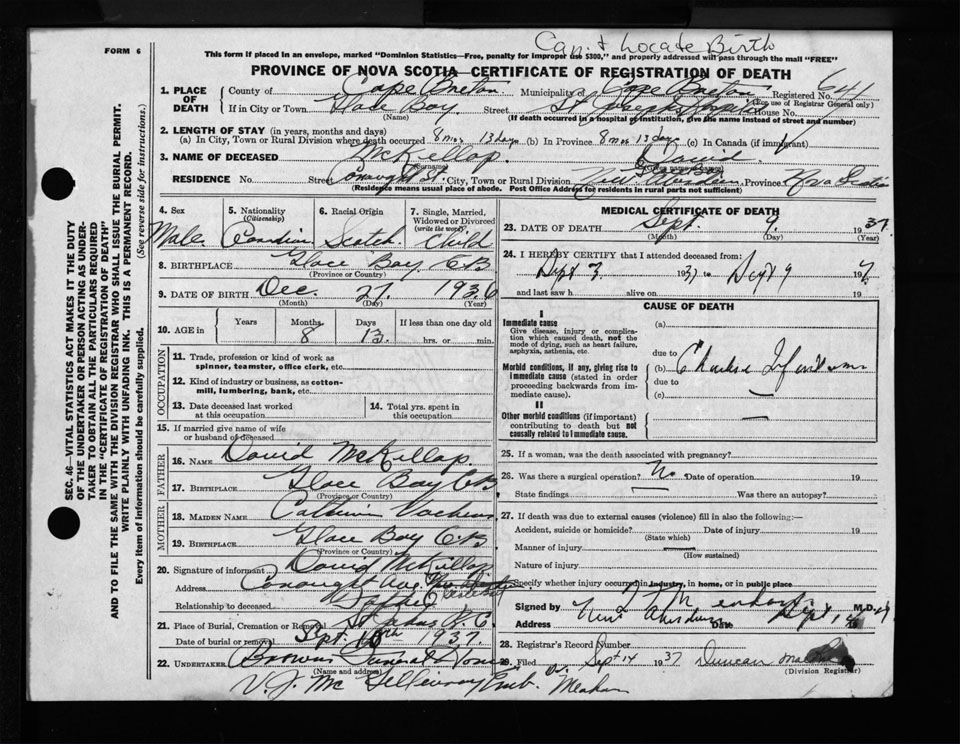 FORM 6
Locate Birth
This form if placed in an envelope, marked "Dominion Statistics—Free, penalty for improper use $300," and properly addressed will pass through the mail "FREE"
PROVINCE OF NOVA SCOTIA—CERTIFICATE OF REGISTRATION OF DEATH
1. PLACE OF DEATH County of Cape Breton Municipality of Cape Breton Registered No. 641
(For use of Registrar General only)
If in City or Town Glace Bay Street St. Joseph's House No.
(Name) (If death occurred in a hospital or institution, give the name instead of street and number)
2. LENGTH OF STAY (in years, months and days)
(a) In City, Town or Rural Division where death occurred 8 mos 13 days (b) In Province 8 mos 13 days (c) In Canada (if immigrant)
3. NAME OF DECEASED McKillop David
(Surname)
RESIDENCE No. Street Conaught St. City, Town or Rural Division New Aberdeen Province Nova Scotia
(Residence means usual place of abode. Post Office Address for residents in rural parts not sufficient)
SEC. 46—VITAL STATISTICS ACT MAKES IT THE DUTY
OF THE UNDERTAKER OR PERSON ACTING AS UNDER-
TAKER TO OBTAIN ALL THE PARTICULARS REQUIRED
IN THE "CERTIFICATE OF REGISTRATION OF DEATH"
AND TO FILE THE SAME WITH THE DIVISION REGISTRAR WHO SHALL ISSUE THE BURIAL PERMIT.
WRITE PLAINLY WITH UNFADING INK. THIS IS A PERMANENT RECORD.
Every item of information should be carefully supplied. (See reverse side for instructions.)
4. Sex Male
5. Nationality (Citizenship) Canadian
6. Racial Origin Scotch
7. Single, Married, Widowed or Divorced (write the word) Child
8. BIRTHPLACE Glace Bay CB
(Province or Country)
9. DATE OF BIRTH Dec. 27. 1936
(Month) (Day) (Year)
10. AGE in Years Months 8 Days 13. If less than one day old hrs. or min.
OCCUPATION
11. Trade, profession or kind of work as spinner, teamster, office clerk, etc.
12. Kind of industry or business, as cotton-mill, lumbering, bank, etc.
13. Date deceased last worked at this occupation
14. Total yrs. spent in this occupation
15. If married give name of wife or husband of deceased
FATHER
16. NAME David McKillop.
17. BIRTHPLACE Glace Bay CB
(Province or Country)
MOTHER
18. MAIDEN NAME
19. BIRTHPLACE Glace Bay C.B
(Province or Country)
20. Signature of informant David McKillop
Address Conaught Ave. New Aberdeen
Relationship to deceased Father
21. Place of Burial, Cremation or Removal St.
Date of burial or removal Sept. 1937.
22. UNDERTAKER Browns Funeral Home
(Name and address)
V. J. Mc Emb.
MEDICAL CERTIFICATE OF DEATH
23. DATE OF DEATH Sept. 9. 1937.
(Month) (Day) (Year)
24. I HEREBY CERTIFY that I attended deceased from:
Sept 3 1937 to Sept 9 1937
and last saw h alive on 19
CAUSE OF DEATH
I
Immediate cause
Give disease, injury or complication which caused death, not the mode of dying, such as heart failure, asphyxia, asthenia, etc.
(a)
due to
Morbid conditions, if any, giving rise to immediate cause (stated in order proceeding backwards from immediate cause).
(b) Cholera Infantum
due to
(c)
II
Other morbid conditions (if important) contributing to death but not causally related to immediate cause.
25. If a woman, was the death associated with pregnancy?
26. Was there a surgical operation? No Date of operation 19
State findings Was there an autopsy?
27. If death was due to external causes (violence) fill in also the following:—
Accident, suicide or homicide? Date of injury 19
(State which)
Manner of injury
(How sustained)
Nature of injury
Specify whether injury occurred in industry, in home, or in public place
Signed by M.D.
Address New Aberdeen Date Sept.
28. Registrar's Record Number
29. Filed Sept 14 1937 Duncan
(Division Registrar)